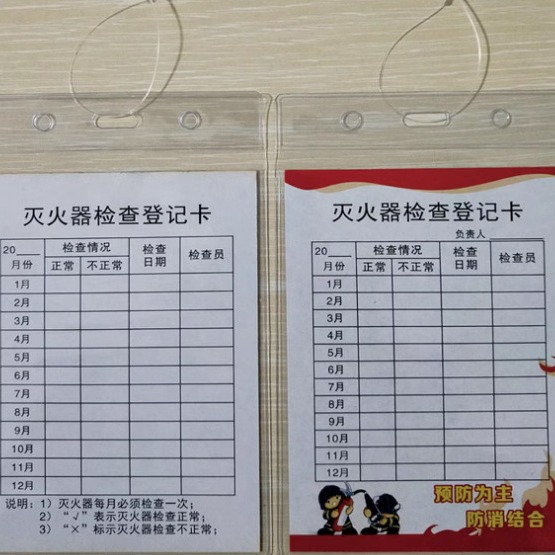 灭火器检查登记卡
20___ 检查情况 检查日期 检查员
月份 正常 不正常
1月
2月
3月
4月
5月
6月
7月
8月
9月
10月
11月
12月
说明：1）灭火器每月必须检查一次；
2）“√”表示灭火器检查正常；
3）“×”标示灭火器检查不正常；
灭火器检查登记卡
负责人
20___ 检查情况 检查日期 检查员
月份 正常 不正常
1月
2月
3月
4月
5月
6月
7月
8月
9月
10月
11月
12月
预防为主
防消结合